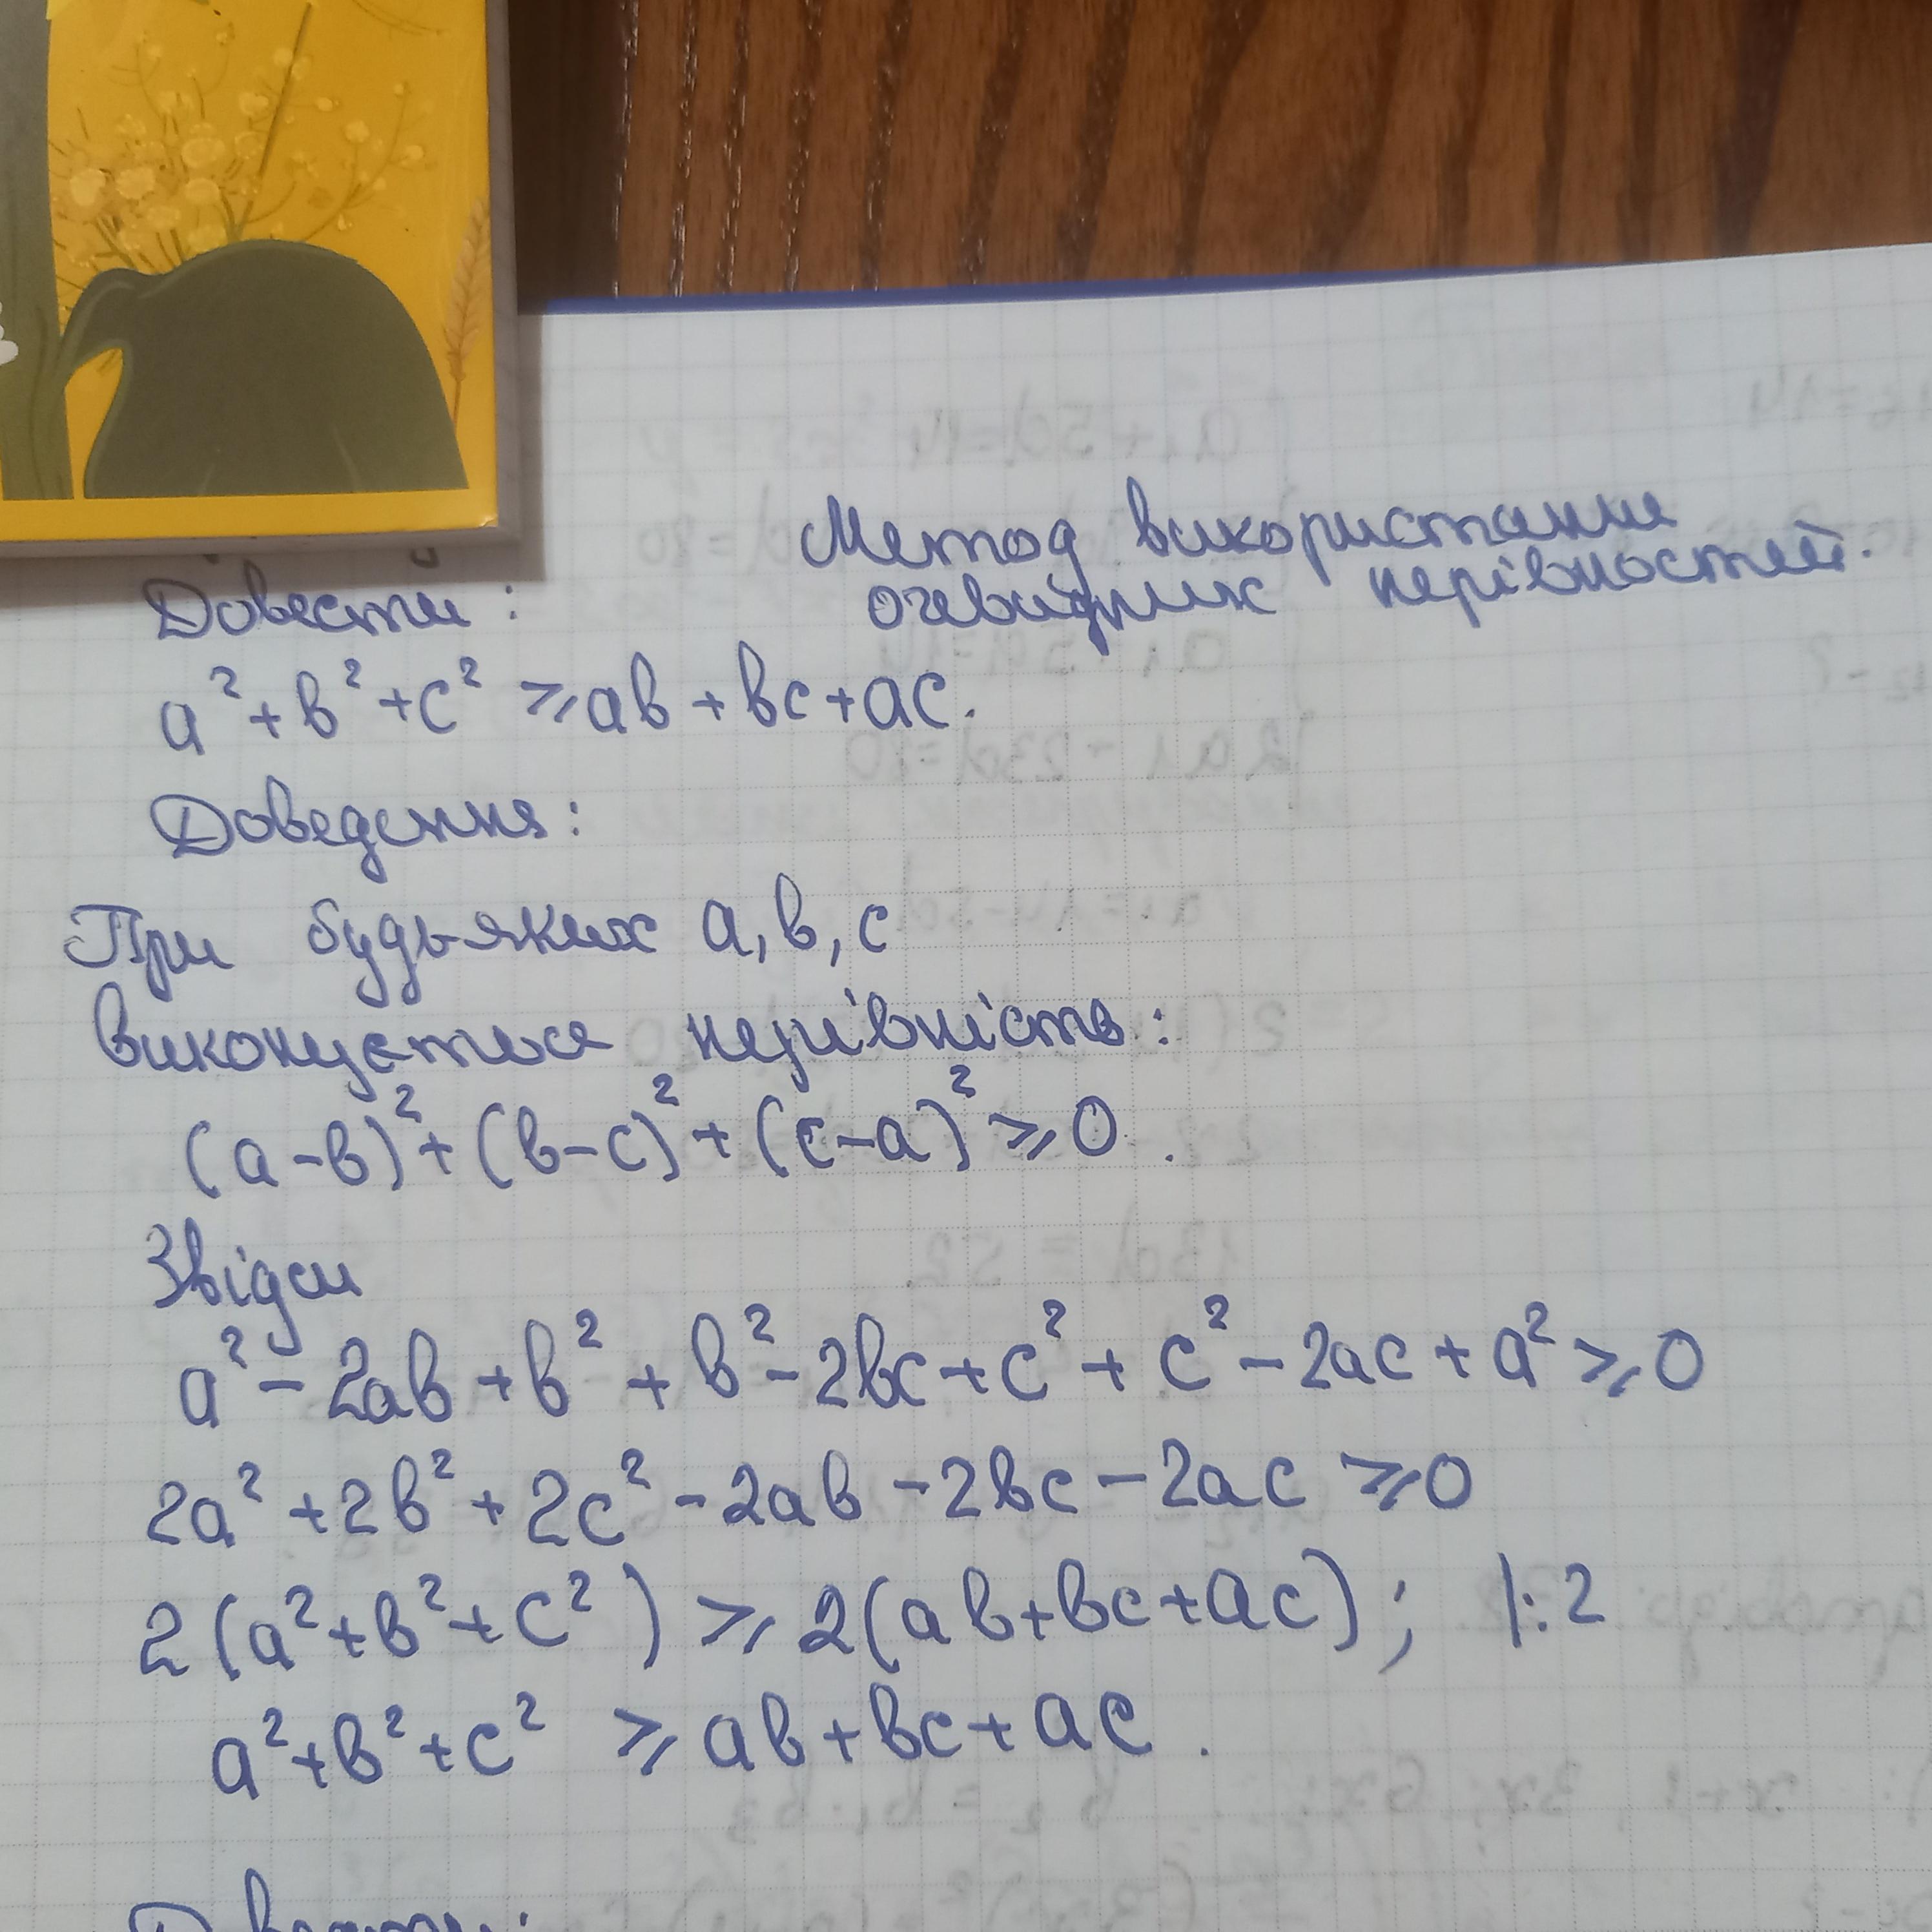 Метод використання
очевидних нерівностей.
Довести:
a² + b² + c² ⩾ ab + bc + ac.
Доведення:
При будь-яких a, b, c
виконується нерівність:
(a - b)² + (b - c)² + (c - a)² ⩾ 0.
Звідси
a² - 2ab + b² + b² - 2bc + c² + c² - 2ac + a² ⩾ 0
2a² + 2b² + 2c² - 2ab - 2bc - 2ac ⩾ 0
2(a² + b² + c²) ⩾ 2(ab + bc + ac); |:2
a² + b² + c² ⩾ ab + bc + ac.